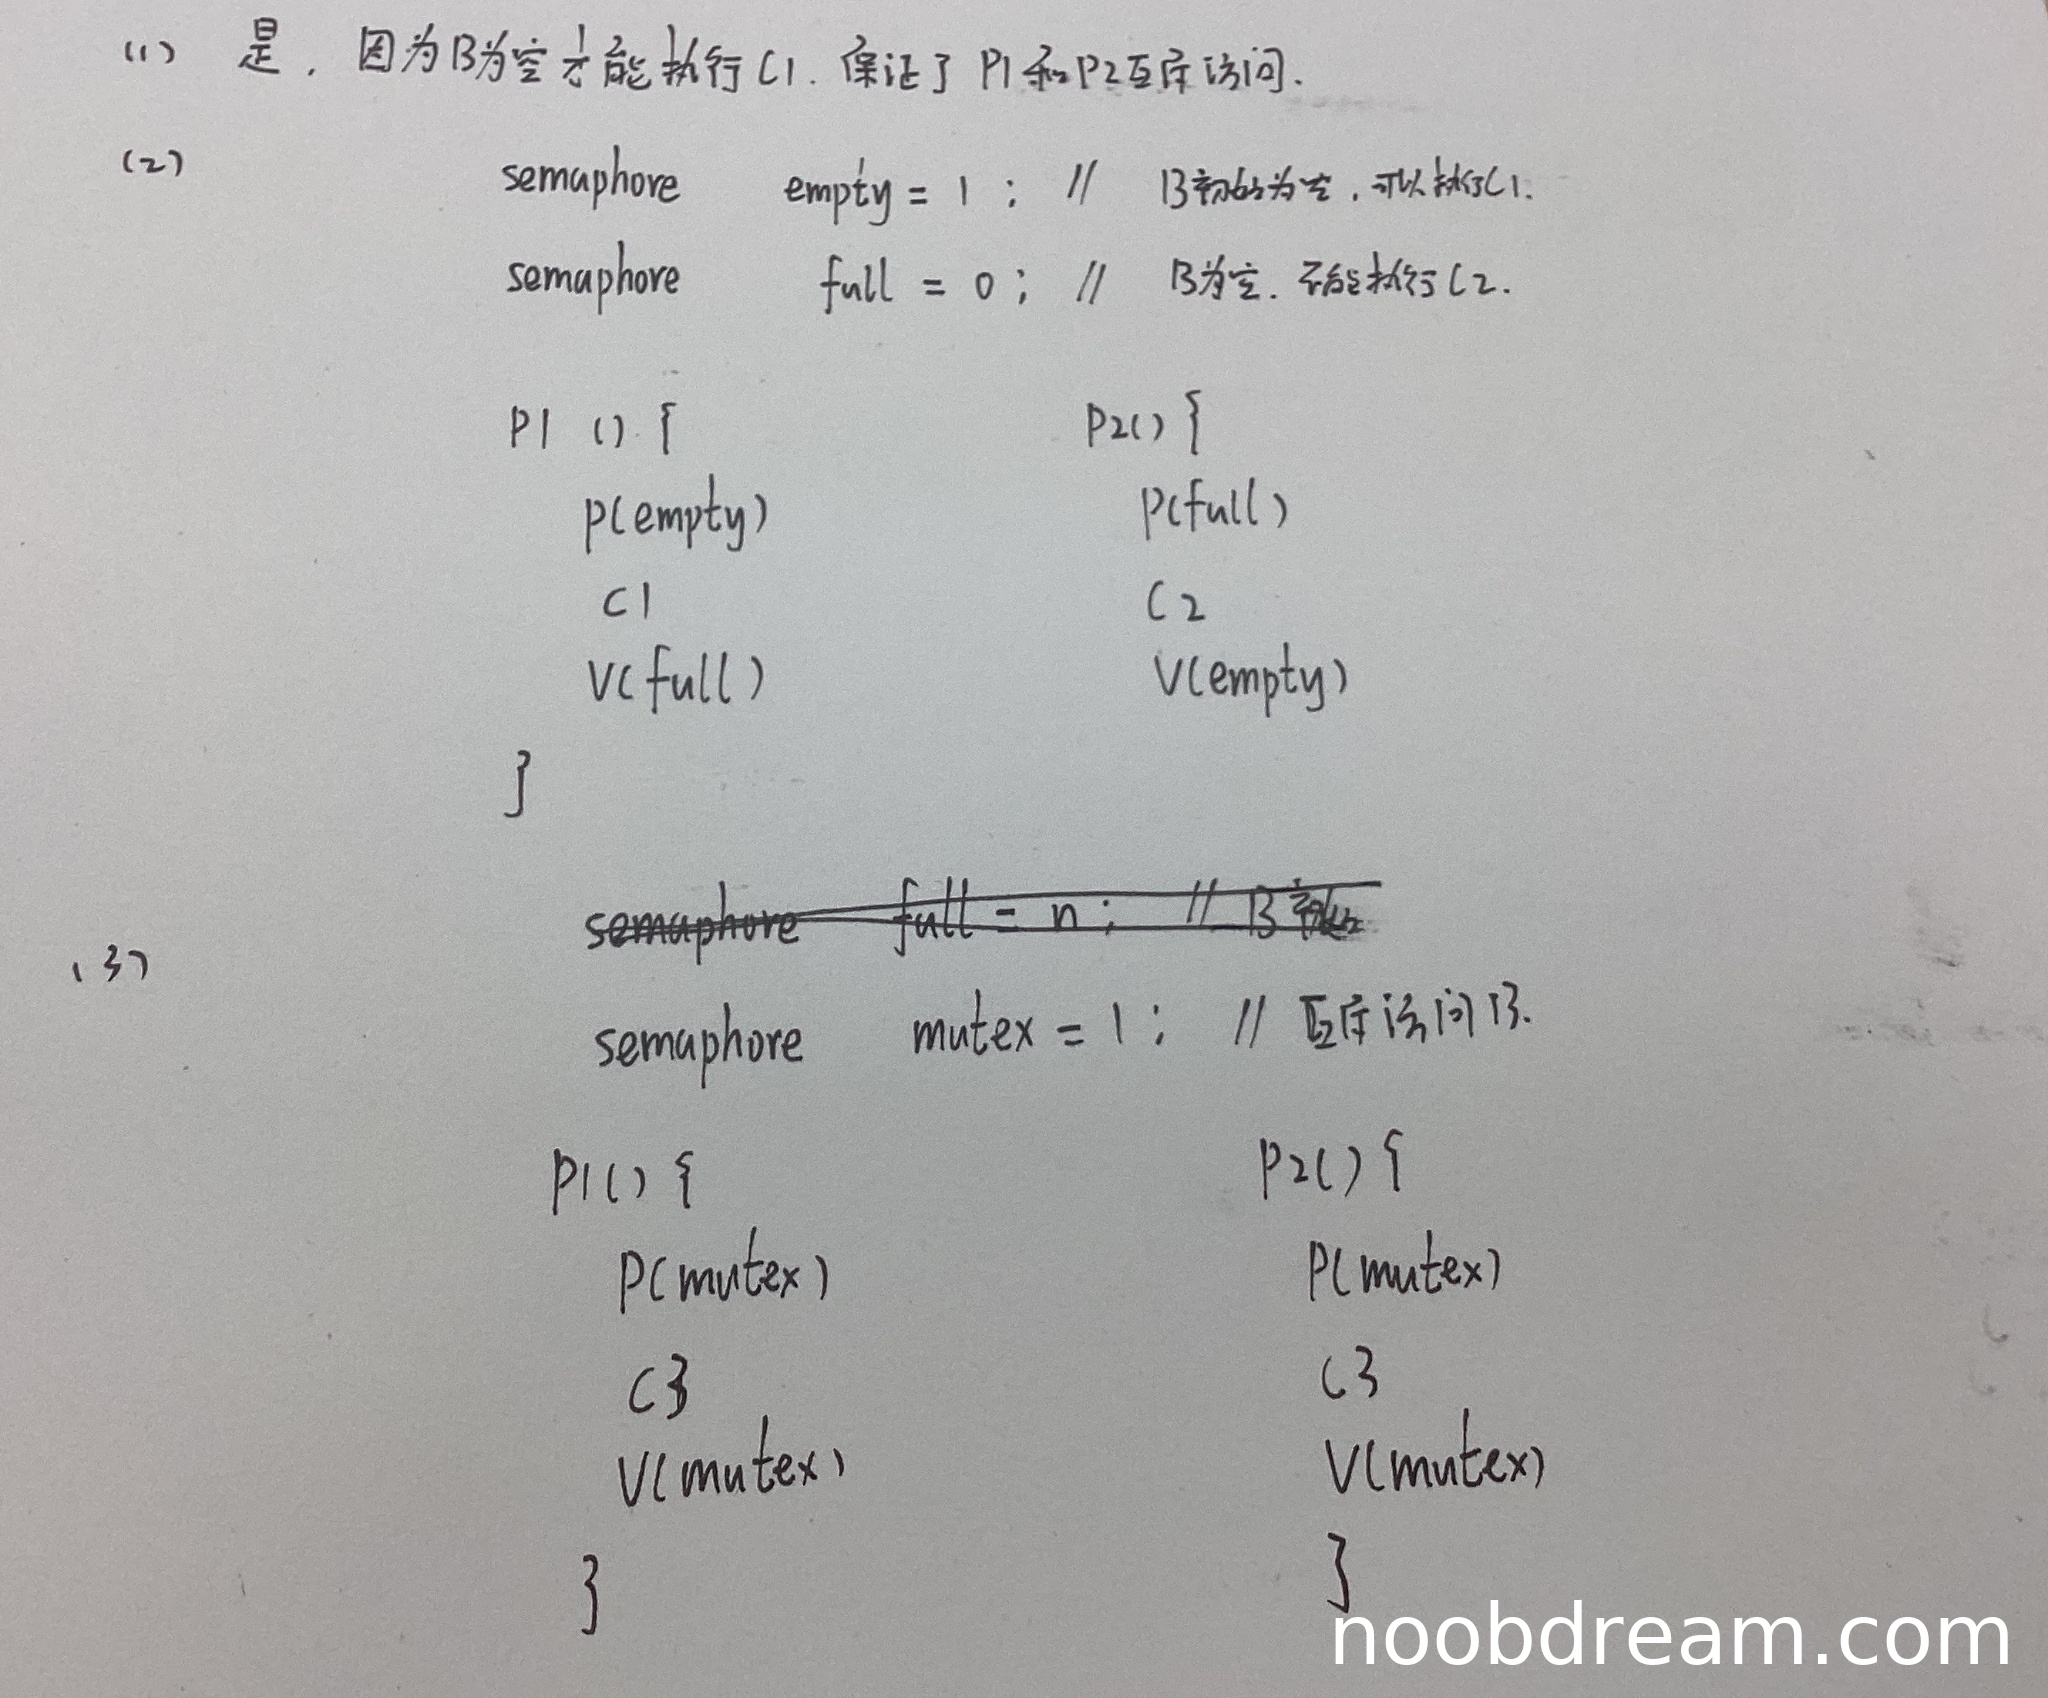 (1) 是. 因为B为空才能执行C1. 保证了P1和P2互斥访问.
(2) semaphore empty = 1 ; // B初始为空, 可以执行C1.
semaphore full = 0 ; // B为空. 不能执行C2.
P1 () { P2() {
P(empty) P(full)
C1 C2
V(full) V(empty)
}
semaphore full = n ; // B初始
(3)
semaphore mutex = 1 ; // 互斥访问B.
P1() { P2() {
P(mutex) P(mutex)
C3 C3
V(mutex) V(mutex)
} }
noobdream.com